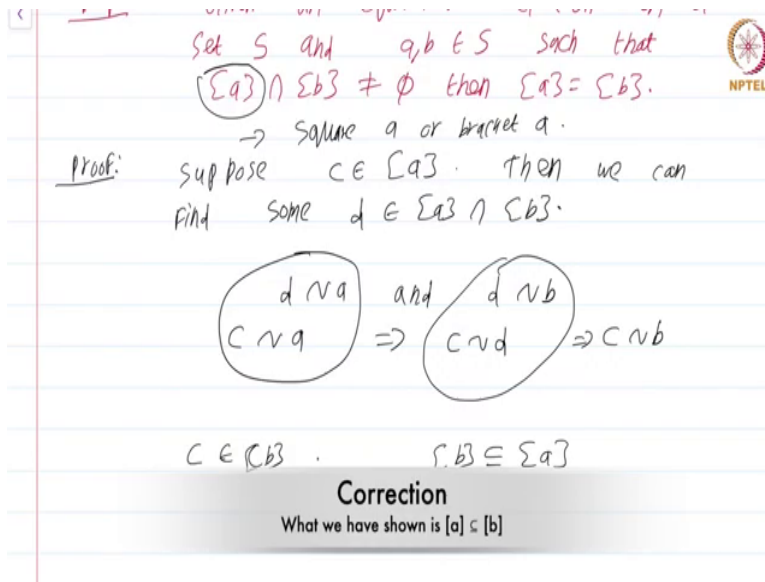 Set S and a,b ∈ S such that
NPTEL
[a] ∩ [b] ≠ ϕ then [a] = [b].
→ square a or bracket a.
Proof: suppose c ∈ [a]. Then we can
find some d ∈ [a] ∩ [b].
d ~ a and d ~ b
c ~ a ⇒ c ~ d ⇒ c ~ b
c ∈ [b]. [b] ⊆ [a]
Correction
What we have shown is [a] ⊆ [b]